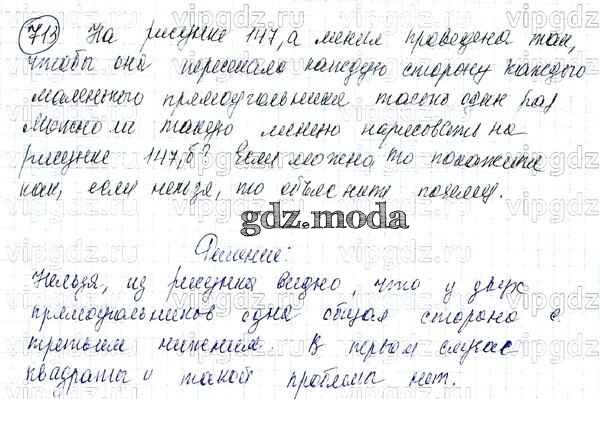 713 На рисунке 147, а линия проведена так,
чтобы она пересекала каждую сторону каждого
маленького прямоугольника только один раз
Можно ли такую линию нарисовать на
рисунке 147, б? Если можно то покажите
как, если нельзя, то объясните почему.
gdz.moda
Решение:
Нельзя, из рисунка видно, что у двух
прямоугольников одна общая сторона с
третьим нижним. В первом случае
квадраты и такой проблемы нет.